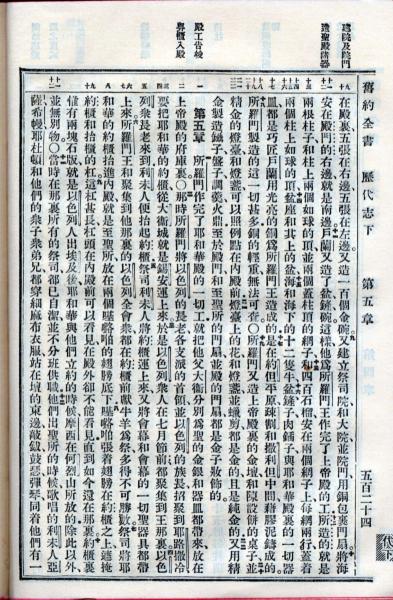 建院及院門
造聖殿諸器
殿工告竣
舁櫃入殿
舊約全書　歷代志下　第五章　五百二十四
代下
在殿裏五張在右邊五張在左邊又造一百個金碗又建立祭司院和大院並院門用銅包裹門扇將海
安在殿門的右邊就是南邊戶蘭又造了盆鏟碗這樣他為所羅門王作完了上帝殿的工所造的就是
兩根柱子和柱上兩個如球的頂並兩個蓋柱頂的網子和四百石榴安在兩個網子上每網兩行蓋着
兩個柱上如球的頂盆座和其上的盆海和海下的十二隻牛盆鏟子肉鍤子與耶和華殿裏的一切器
皿都是巧匠戶蘭用光亮的銅為所羅門王造成的是在約但平原疎割和撒利但中間藉膠泥鑄成的
所羅門製造的這一切甚多銅的輕重無法可查〇所羅門又造上帝殿裏的金壇和陳設餅的桌子並
精金的燈臺和燈盞可以照例點在內殿前燈臺上的花和燈盞並蠟剪都是金的且是純金的又用精
金製造鑷子盤子調羹火鼎至於殿門和至聖所的門扇並殿的門扇都是金子妝飾的
一　第五章　所羅門作完了耶和華殿的一切工就把他父大衛分別為聖的金銀和器皿都帶來放在
上帝殿的府庫裏〇那時所羅門將以色列的長老各支派的首領並以色列的族長招聚到耶路撒冷
要把耶和華的約櫃從大衛城就是錫安運上來於是以色列衆人在七月節前都聚集到王那裏以色
列衆長老來到利未人便抬起約櫃祭司利未人將約櫃運上來又將會幕和會幕的一切聖器具都帶
上來所羅門王和聚集到他那裏的以色列全會衆都在約櫃前獻牛羊為祭多得不可勝數祭司將耶
和華的約櫃抬進內殿就是至聖所放在兩個的翅膀底下張着翅膀在約櫃之上遮掩
約櫃和抬櫃的杠這杠甚長杠頭在內殿前可以看見在殿外卻不能看見直到如今還在那裏約櫃裏
僅有兩塊石版就是以色列人出埃及後耶和華與他們立約的時候摩西在何烈山所放的除此以外
並無別物〇當時在那裏所有的祭司都已自潔並不分班供職他們出聖所的時候歌唱的利未人亞
薩希幔耶杜頓和他們的衆子衆弟兄都穿細麻布衣服站在壇的東邊敲鈸鼓瑟彈琴同着他們有一